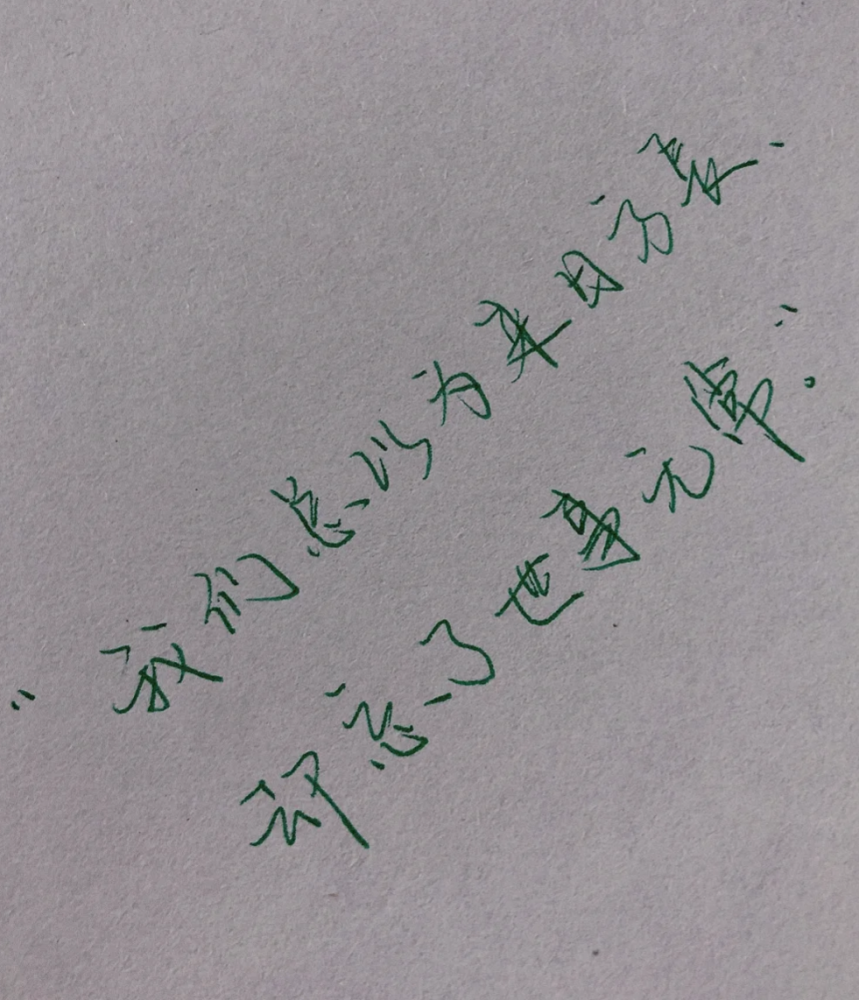 “我们总以为来日方长.
却忘了世事无常.”